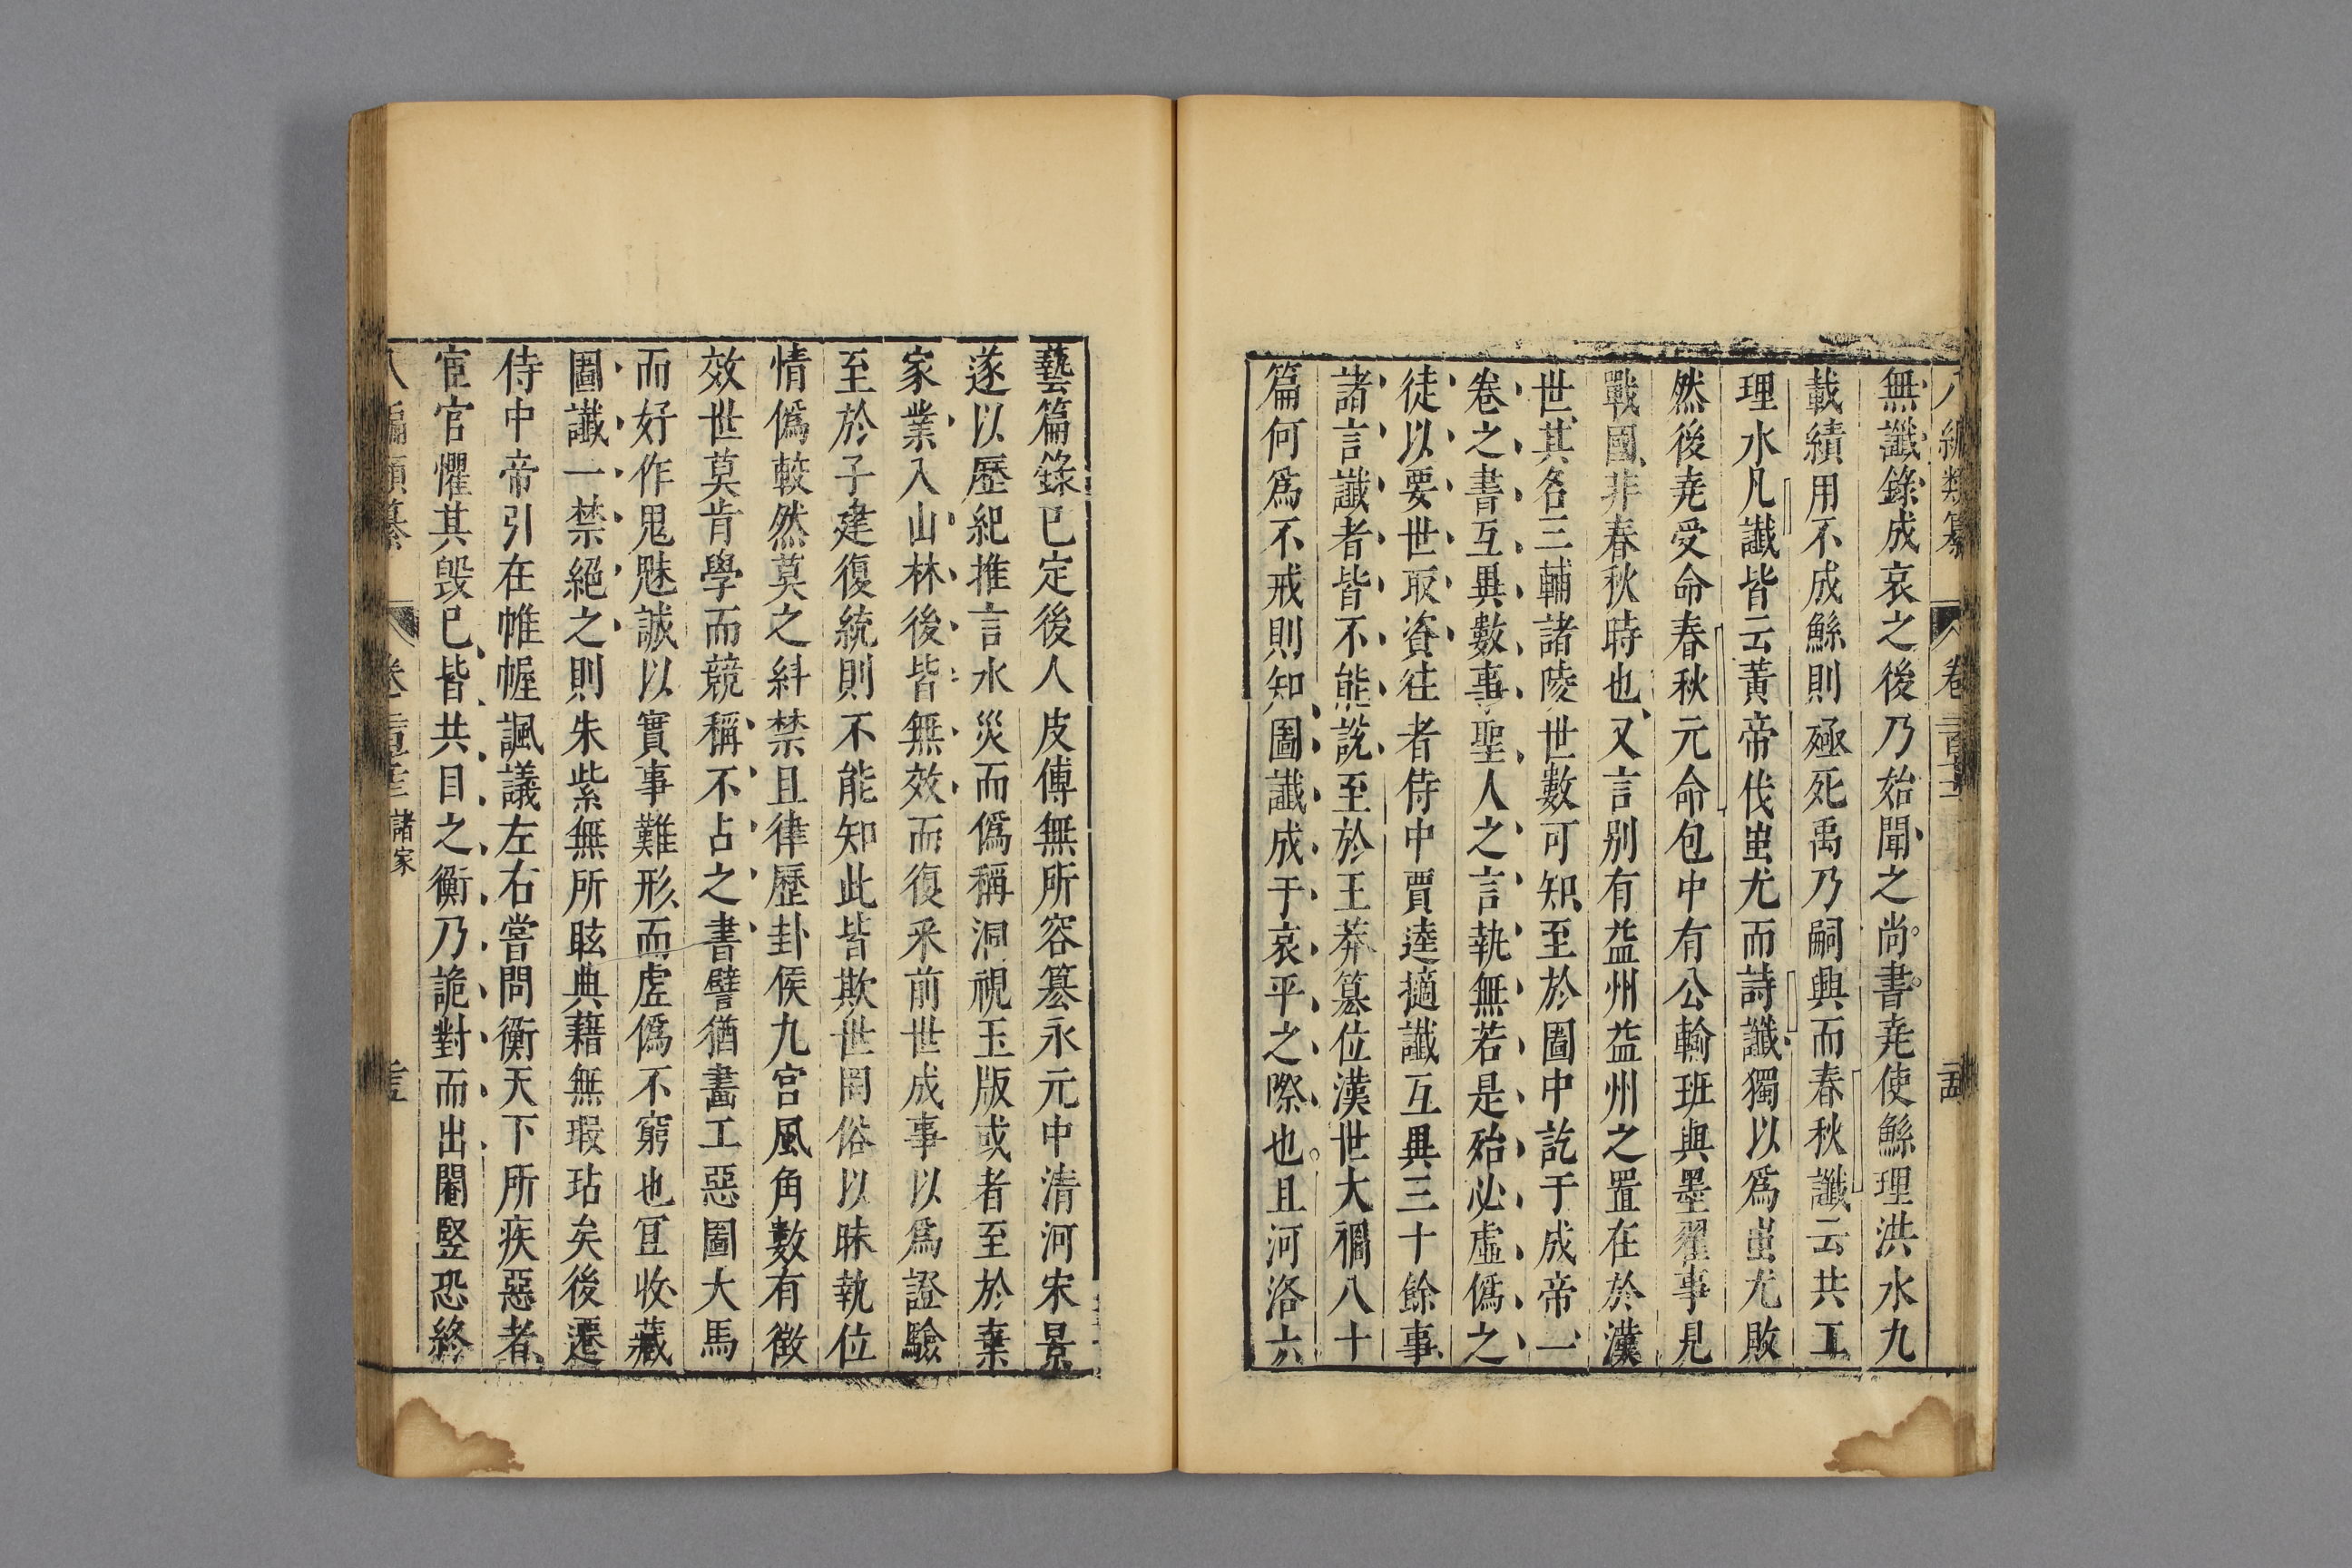 無讖錄成哀之後乃始聞之尚書堯使鯀理洪水九
載績用不成鯀則殛死禹乃嗣興而春秋讖云共工
理水凡讖皆云黃帝伐蚩尤而詩讖獨以爲蚩尤敗
然後堯受命春秋元命包中有公輸班與墨翟事見
戰國非春秋時也又言别有益州益州之置在於漢
世其各三輔諸陵世數可知至於圖中訖于成帝一
卷之書互異數事聖人之言執無若是殆必虛僞之
徒以要世取資徃者侍中賈逵擿讖互異三十餘事
諸言讖者皆不能說至於王莽篡位漢世大禍八十
篇何爲不戒則知圖讖成于哀平之際也且河洛六
藝篇錄已定後人皮傅無所容篡永元中清河宋景
遂以歷紀推言水災而僞稱洞視玉版或者至於棄
家業入山林後皆無效而復采前世成事以爲證驗
至於子建復統則不能知此皆欺世罔俗以昧執位
情僞較然莫之糾禁且律歷卦候九宫風角數有徴
效世莫肯學而競稱不占之書譬猶畵工惡圖大馬
而好作鬼魅誠以實事難形而虛僞不窮也宜收藏
圖讖一禁絕之則朱紫無所眩典藉無瑕玷矣後遷
侍中帝引在帷幄諷議左右嘗問衡天下所疾惡者
宦官懼其毁已皆共目之衡乃詭對而出閹竪恐終
編類纂 卷 諸家